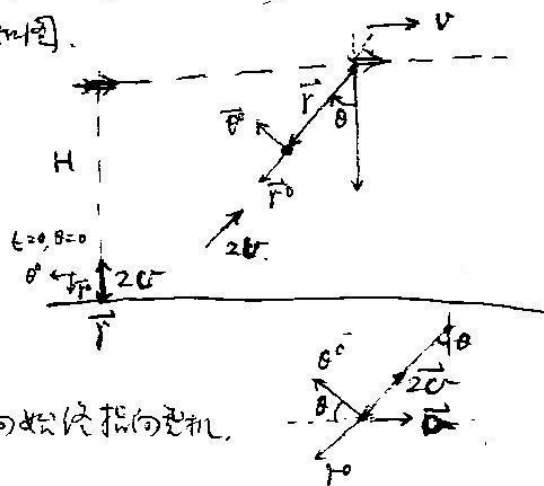 如图.
V
r⃗
θ
θ⃗⁰
H
r⃗⁰
2v
t=0, θ=0
θ⁰ r⁰ 2v
r⃗
θ⁰
θ
2v⃗
θ
r⁰
向始终指向飞机.